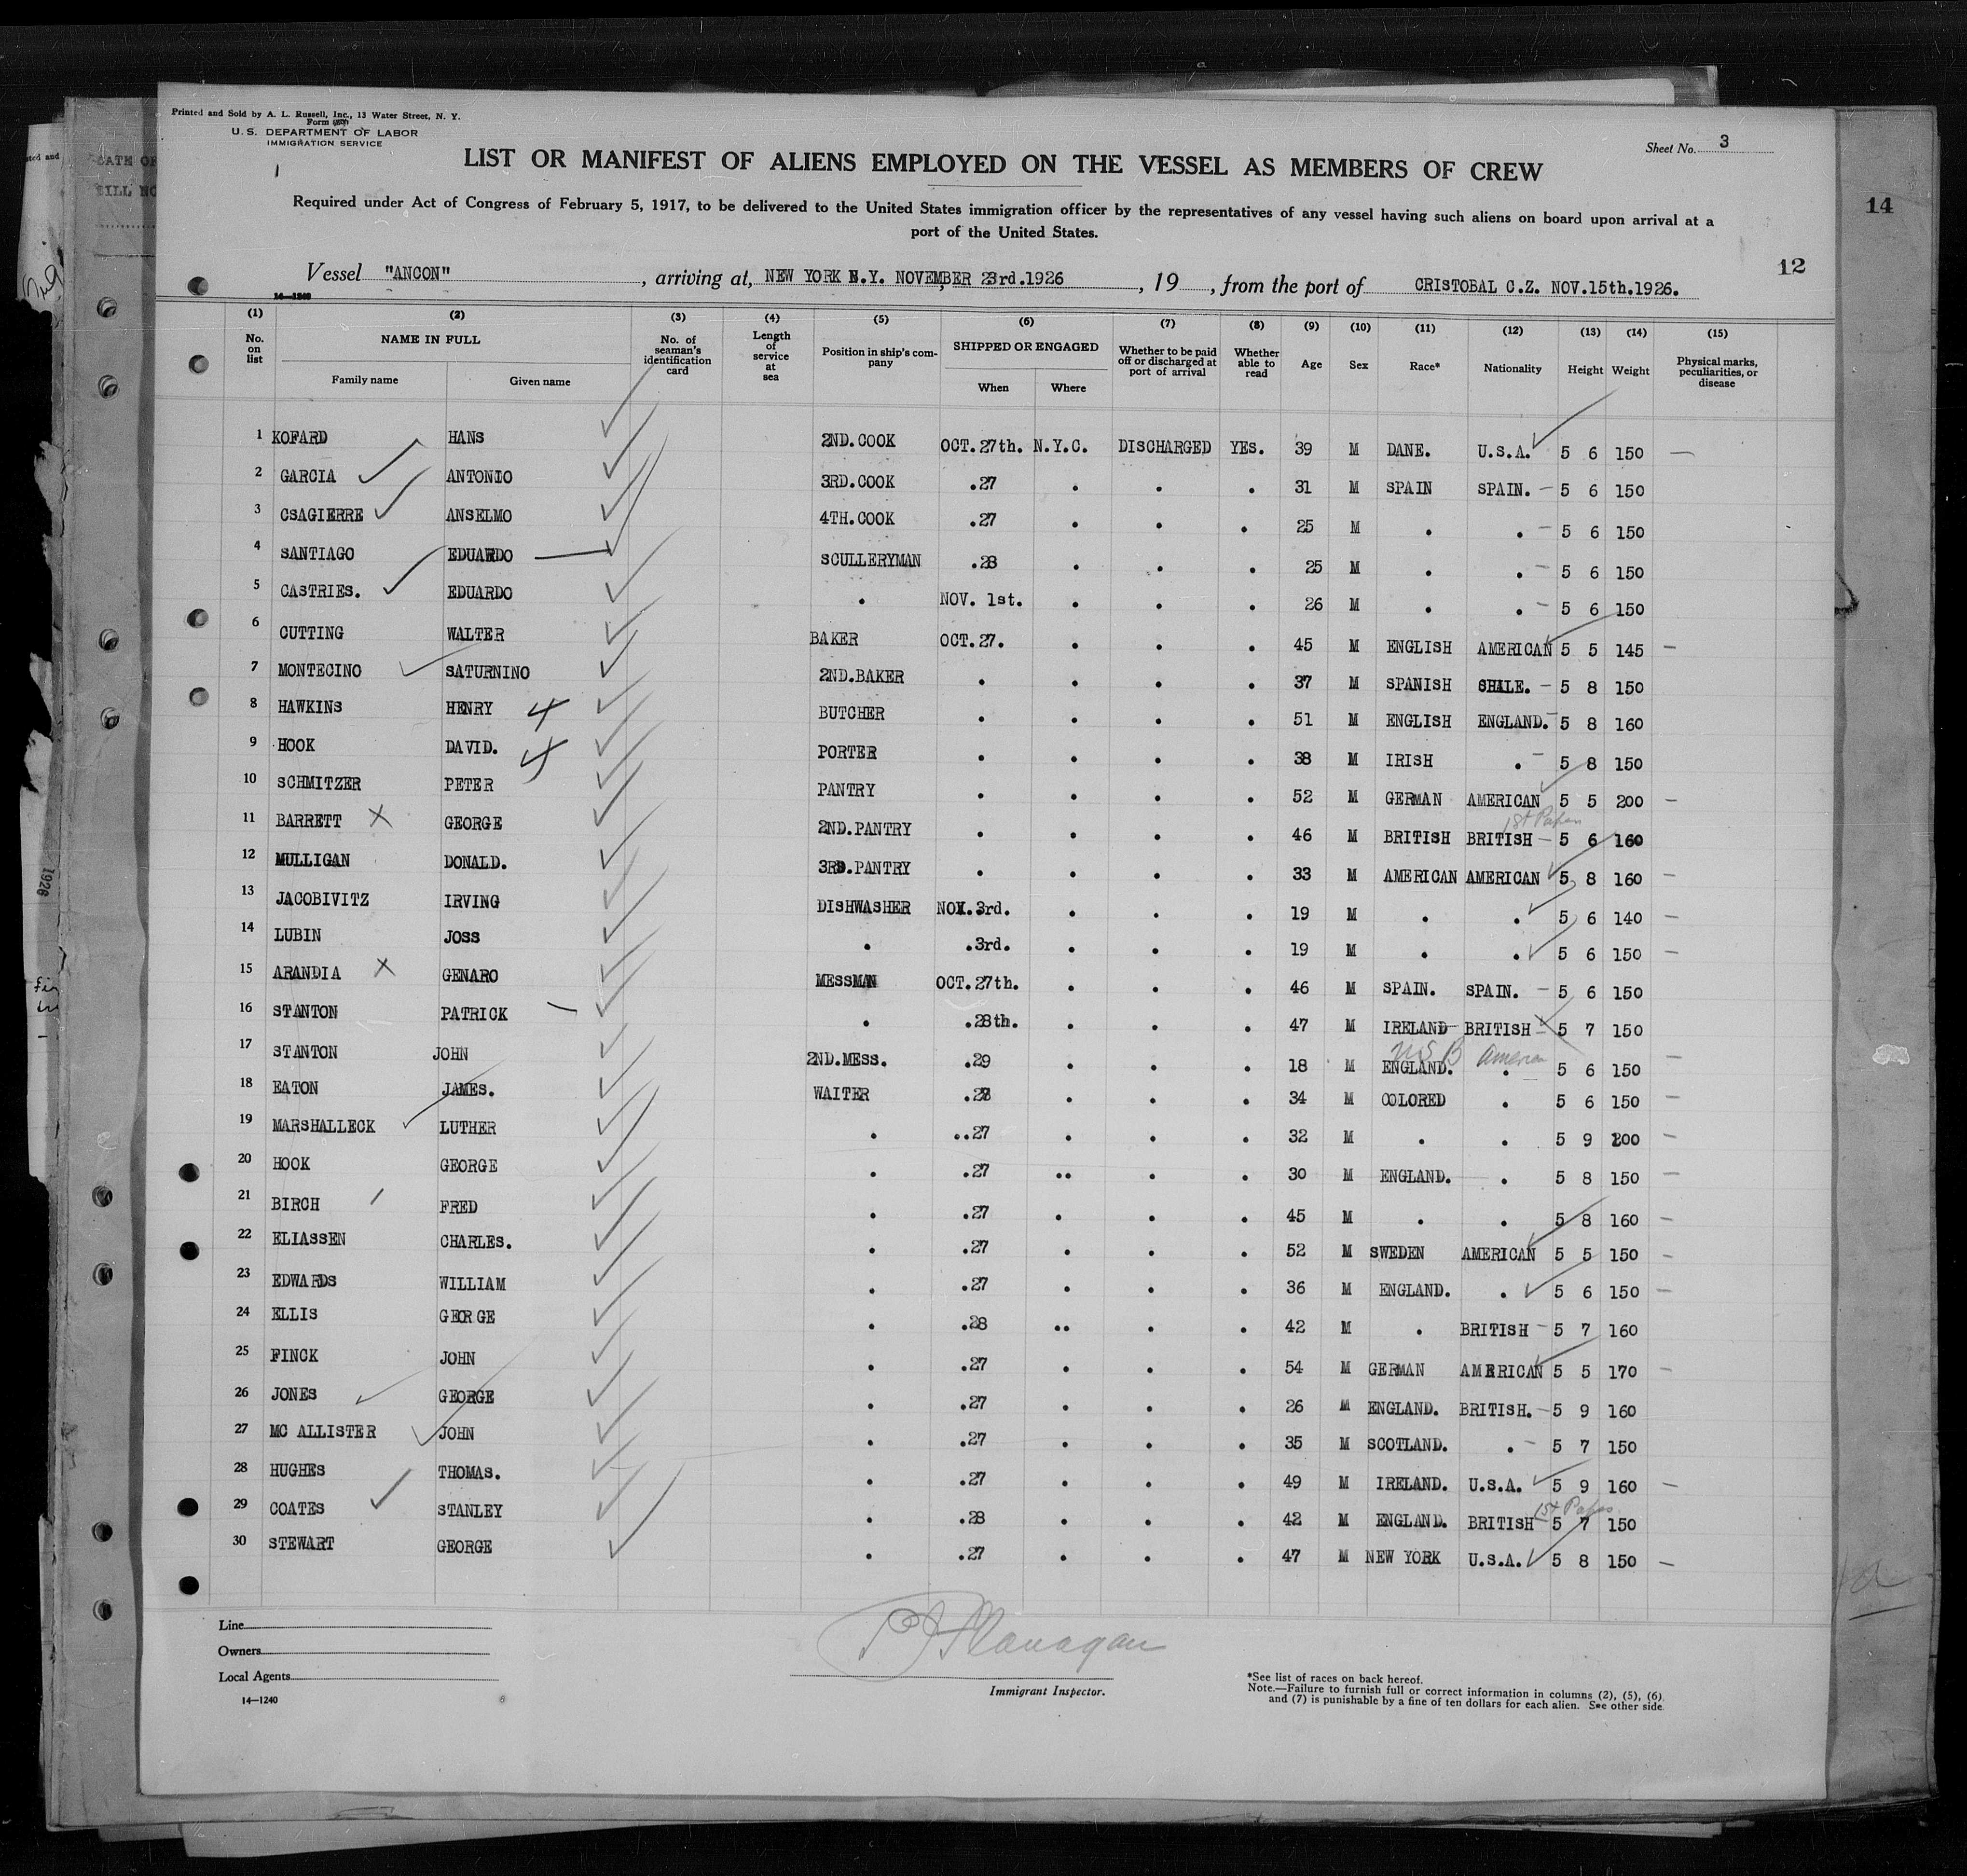 Printed and Sold by A. L. Russell, Inc., 13 Water Street, N. Y.
Form
U. S. DEPARTMENT OF LABOR
IMMIGRATION SERVICE
Sheet No. 3
LIST OR MANIFEST OF ALIENS EMPLOYED ON THE VESSEL AS MEMBERS OF CREW
Required under Act of Congress of February 5, 1917, to be delivered to the United States immigration officer by the representatives of any vessel having such aliens on board upon arrival at a
port of the United States.
14
12
Vessel "ANCON", arriving at, NEW YORK N.Y. NOVEMBER 23rd.1926, 19 , from the port of CRISTOBAL C.Z. NOV.15th.1926.
14—1240
(1) (2) (3) (4) (5) (6) (7) (8) (9) (10) (11) (12) (13) (14) (15)
No. on list NAME IN FULL Family name Given name No. of seaman's identification card Length of service at sea Position in ship's company SHIPPED OR ENGAGED When Where Whether to be paid off or discharged at port of arrival Whether able to read Age Sex Race* Nationality Height Weight Physical marks, peculiarities, or disease
1 KOFARD HANS 2ND.COOK OCT.27th. N.Y.C. DISCHARGED YES. 39 M DANE. U.S.A. 5 6 150 —
2 GARCIA ANTONIO 3RD.COOK .27 . . . 31 M SPAIN SPAIN. — 5 6 150
3 CSAGIERRE ANSELMO 4TH.COOK .27 . . . 25 M . . — 5 6 150
4 SANTIAGO EDUARDO SCULLERYMAN .28 . . . 25 M . . — 5 6 150
5 CASTRIES. EDUARDO . NOV. 1st. . . . 26 M . . — 5 6 150
6 CUTTING WALTER BAKER OCT.27. . . . 45 M ENGLISH AMERICAN 5 5 145 —
7 MONTECINO SATURNINO 2ND.BAKER . . . . 37 M SPANISH CHILE. — 5 8 150
8 HAWKINS HENRY 4 BUTCHER . . . . 51 M ENGLISH ENGLAND. — 5 8 160
9 HOOK DAVID. 4 PORTER . . . . 38 M IRISH . — 5 8 150
10 SCHMITZER PETER PANTRY . . . . 52 M GERMAN AMERICAN 5 5 200 —
1st Paper
11 BARRETT X GEORGE 2ND.PANTRY . . . . 46 M BRITISH BRITISH — 5 6 160
12 MULLIGAN DONALD. 3RD.PANTRY . . . . 33 M AMERICAN AMERICAN 5 8 160 —
13 JACOBIVITZ IRVING DISHWASHER NOV.3rd. . . . 19 M . . 5 6 140 —
14 LUBIN JOSS . .3rd. . . . 19 M . . 5 6 150 —
15 ARANDIA X GENARO MESSMAN OCT.27th. . . . 46 M SPAIN. SPAIN. — 5 6 150
16 STANTON PATRICK . .28th. . . . 47 M IRELAND BRITISH — 5 7 150
USB American
17 STANTON JOHN 2ND.MESS. .29 . . . 18 M ENGLAND. . 5 6 150 —
18 EATON JAMES. WAITER .28 . . . 34 M COLORED . 5 6 150 —
19 MARSHALLECK LUTHER . ..27 . . . 32 M . . 5 9 200 —
20 HOOK GEORGE . .27 .. . . 30 M ENGLAND. . 5 8 150 —
21 BIRCH FRED . .27 . . . 45 M . . 5 8 160 —
22 ELIASSEN CHARLES. . .27 . . . 52 M SWEDEN AMERICAN 5 5 150 —
23 EDWARDS WILLIAM . .27 . . . 36 M ENGLAND. . 5 6 150 —
24 ELLIS GEORGE . .28 .. . . 42 M . BRITISH — 5 7 160
25 FINCK JOHN . .27 . . . 54 M GERMAN AMERICAN 5 5 170 —
26 JONES GEORGE . .27 . . . 26 M ENGLAND. BRITISH. — 5 9 160
27 MC ALLISTER JOHN . .27 . . . 35 M SCOTLAND. . — 5 7 150
28 HUGHES THOMAS. . .27 . . . 49 M IRELAND. U.S.A. 5 9 160 —
1st Papers
29 COATES STANLEY . .28 . . . 42 M ENGLAND. BRITISH 5 7 150
30 STEWART GEORGE . .27 . . . 47 M NEW YORK U.S.A. 5 8 150 —
Line
Owners
Local Agents
14—1240
P J Flanagan
Immigrant Inspector.
*See list of races on back hereof.
Note.—Failure to furnish full or correct information in columns (2), (5), (6)
and (7) is punishable by a fine of ten dollars for each alien. See other side.